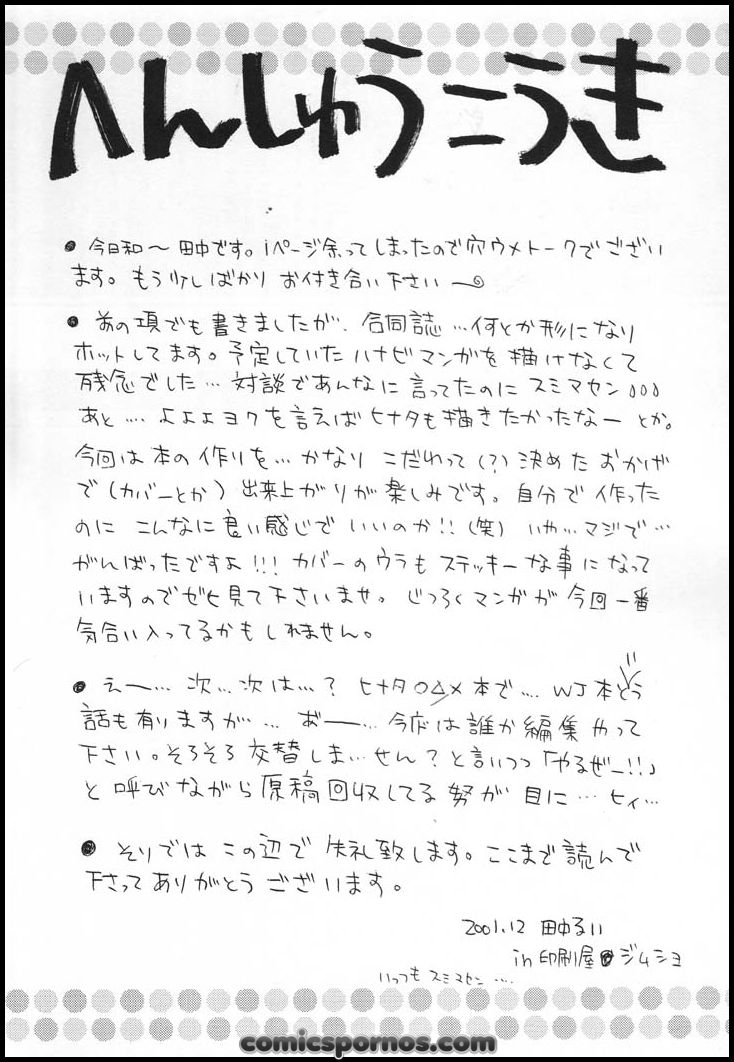 へんしゅうこうき
● 今日和〜田中です。1ページ余ってしまったので穴ウメトークでござい
ます。もう少しばかり お付き合い下さい〜
● あの項でも書きましたが、合同誌…何とか形になり
ホットしてます。予定していたハナビマンガを描けなくて
残念でした…対談であんなに言ってたのにスミマセン
あと…よよよヨクを言えばヒナタも描きたかったなー とか。
今回は本の作りを…かなり こだわって(?)決めた おかげ
で(カバーとか)出来上がりが楽しみです。自分で作った
のに こんなに良い感じで いいのか!!(笑) いや…マジで…
がんばったですよ!!!カバーのウラもステッキーな事になって
いますのでゼヒ見て下さいませ。じつろくマンガが今回一番
気合い入ってるかもしれません。
● えー…次…次は…? ヒナタ○△×本で…WJ本とう
話も有りますが…お——…今度は誰か編集やって
下さい。そろそろ交替しま…せん?と言いつつ「やるぜー!!」
と呼びながら原稿回収してる努が目に…ヒィ…
● そりでは この辺で 失礼致します。ここまで読んで
下さってありがとう ございます。
2001.12 田中るい
in 印刷屋 ジムショ
いっつも スミマセン…
comicspornos.com